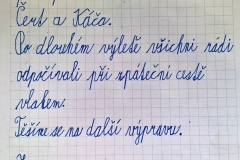 Čert a Káča.
Po dlouhém výletě všichni rádi
odpočívali při zpáteční cestě
vlakem.
Těšíme se na další výpravu.